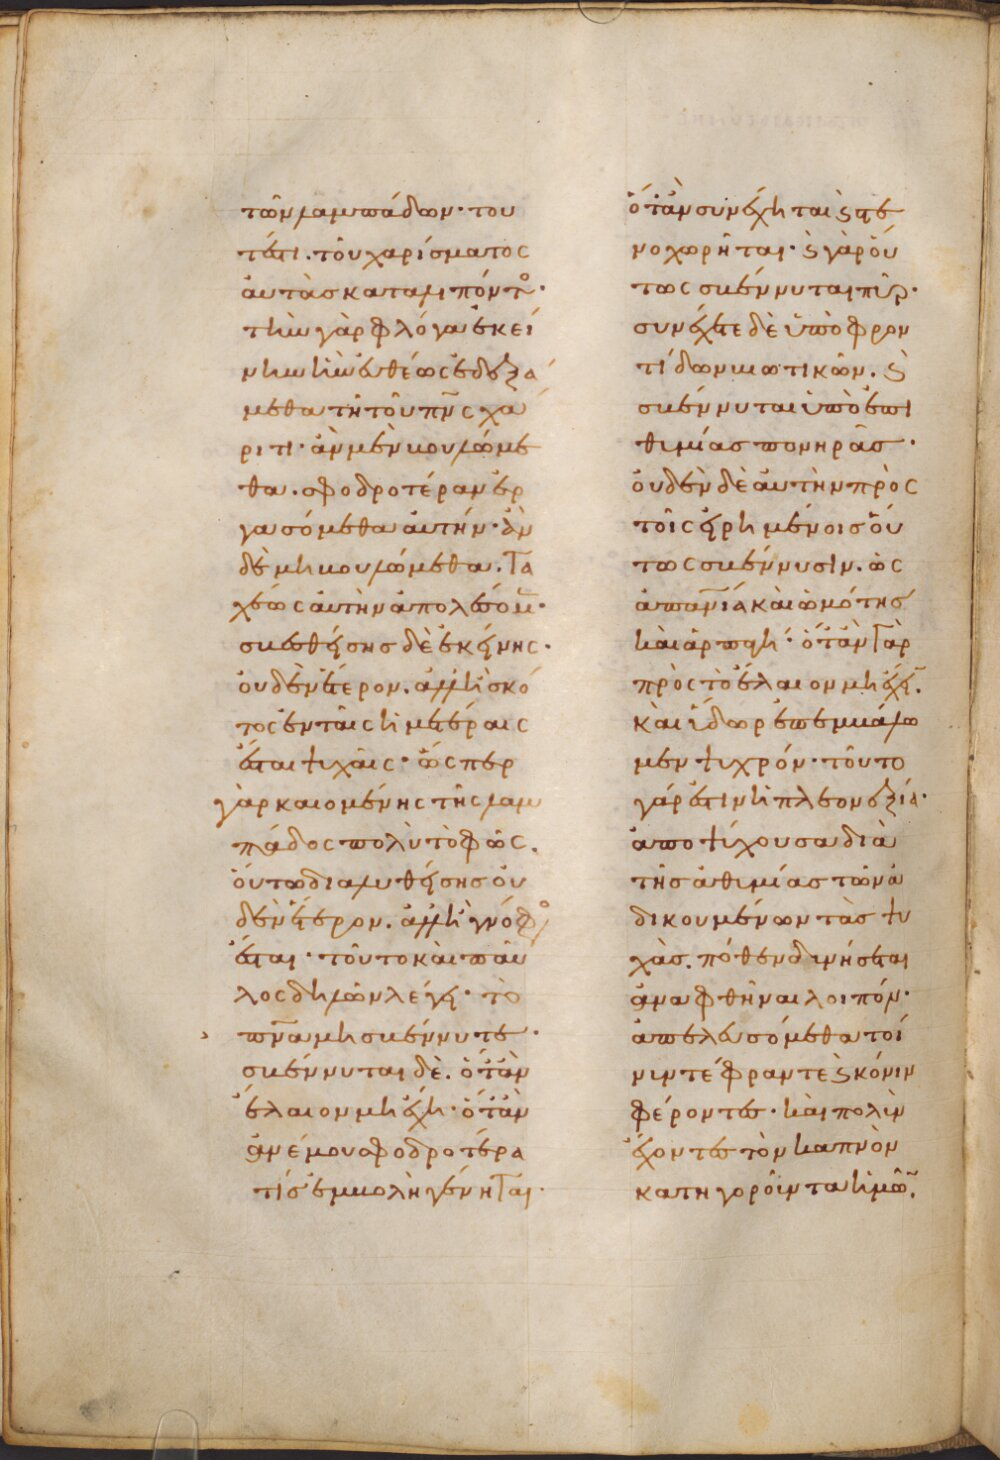 τῶν λαμπάδων· του
τέστι. τοῦ χαρίσματος
αὐτὰς καταλιπόντο̅ς·
τὴν γὰρ φλόγα ἐκεί
νην ἣν εὐθέως ἐδεξά
μεθα τῆ τοῦ πν̅ς χά
ριτι· ἂν μὲν βουλώμε
θα. σφοδροτέραν ἐρ
γασόμεθα αὐτήν· ἂν
δὲ μὴ βουλώμεθα. τα
χέως αὐτὴν ἀπολέσομ̅·
σβεσθείσης δὲ ἐκείνης·
οὐδὲν ἕτερον. ἀλλ' ἢ σκό
τος ἐν ταῖς ἡμετέραις
ἔσται ψυχαῖς· ὥσπερ
γὰρ καιομένης τῆς λαμ
πάδος πολὺ τὸ φῶς.
οὕτω διαλυθείσης οὐ
δὲν ἕτερον. ἀλλ' ἢ γνόφο̅ς
ἔσται· τοῦτο καὶ παῦ
λος δηλῶν λέγει· τὸ
πν̅α μὴ σβέννυτε·
σβέννυται δὲ. ὅταν
ἔλαιον μὴ ἔχη· ὅταν
ἀνέμου σφοδροτέρα
τίς ἐμβολὴ γένηται·
ὅταν συνέχηται ϗ στε
νοχωρῆται· ϗ γὰρ οὕ
τως σβέννυται πῦρ·
συνέχεται δὲ ὑπὸ φρον
τίδων βιωτικῶν. ϗ
σβέννυται ὑπὸ ἐπι
θυμίας πονηρᾶς·
οὐδὲν δὲ αὐτὴν πρὸς
τοῖς εἰρημένοις οὕ
τως σβέννυσιν. ὡς
ἀπαν̅ία καὶ ὠμότης
καὶ ἁρπαγή· ὅταν γὰρ
πρὸς τὸ ἔλαιον μὴ ἔχειν̅.
καὶ ὕδωρ ἐπεμβάλω
μεν ψυχρόν· τοῦτο
γάρ ἐστιν ἡ πλεονεξία·
ἀποψύχουσα διὰ
τῆς ἀθυμίας τῶν ἀ
δικουμένων τὰς ψυ
χάς. πόθεν δυνήσεται
ἀναφθῆναι λοιπόν·
ἀπελευσόμεθα τοί
νυν τέφραν τὲ ϗ κόνιν
φέροντες· καὶ πολὺν
ἔχοντες τὸν καπνὸν
κατηγοροῦντα ἡμῶ̅.